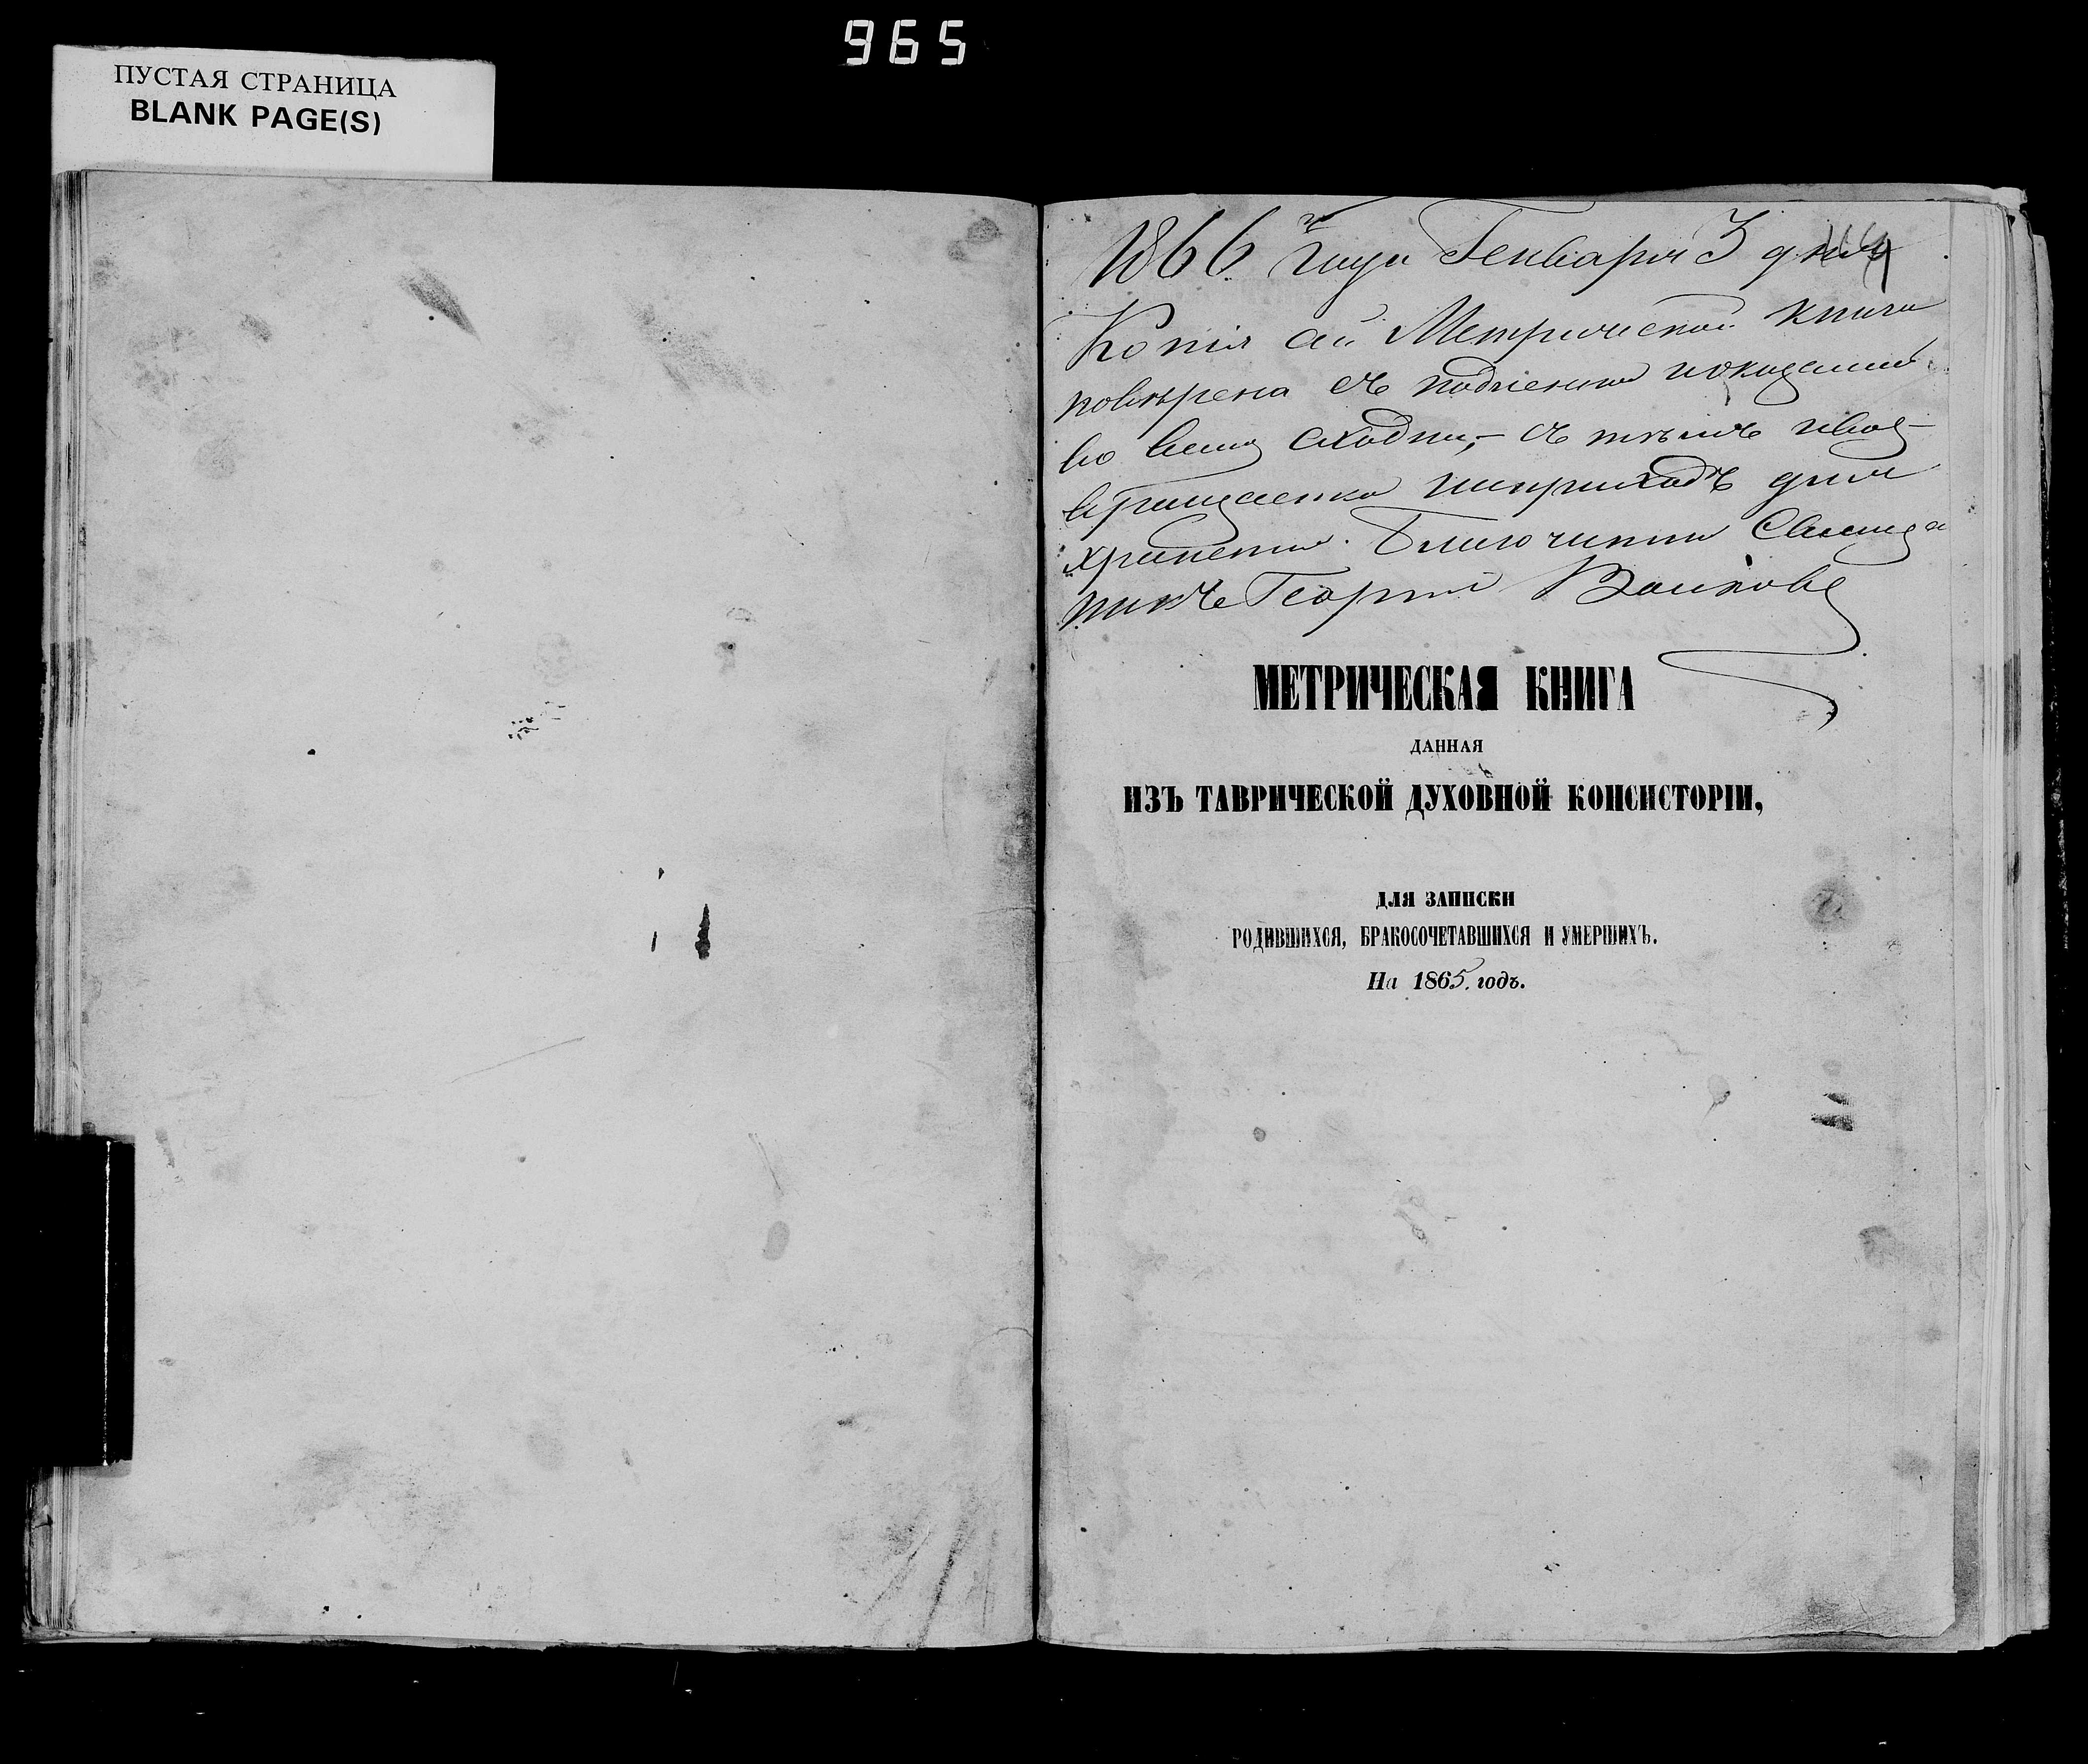 965
ПУСТАЯ СТРАНИЦА
BLANK PAGE(S)
1866 года Генваря 3 дня
Копія сей Метрической книги
повѣрена съ подлинною и оказалась
во всемъ сходною, съ тѣмъ и воз-
вращается въ приходъ для
храненія. Благочинный Священ
никъ Георгій
МЕТРИЧЕСКАЯ КНИГА
ДАННАЯ
ИЗЪ ТАВРИЧЕСКОЙ ДУХОВНОЙ КОНСИСТОРІИ,
ДЛЯ ЗАПИСКИ
РОДИВШИХСЯ, БРАКОСОЧЕТАВШИХСЯ И УМЕРШИХЪ.
На 1865 годъ.